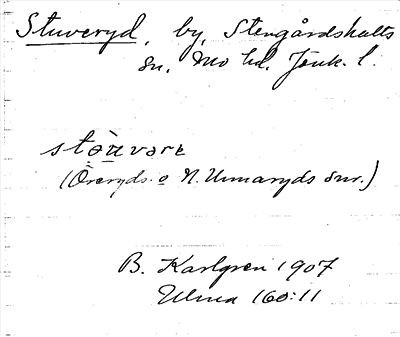 Stuveryd, by, Stengårdshults
sn, Mo hd, Jönk. l.
(Öreryds o N. Unnaryds snr.)
B. Karlgren 1907
Ulma 160:11